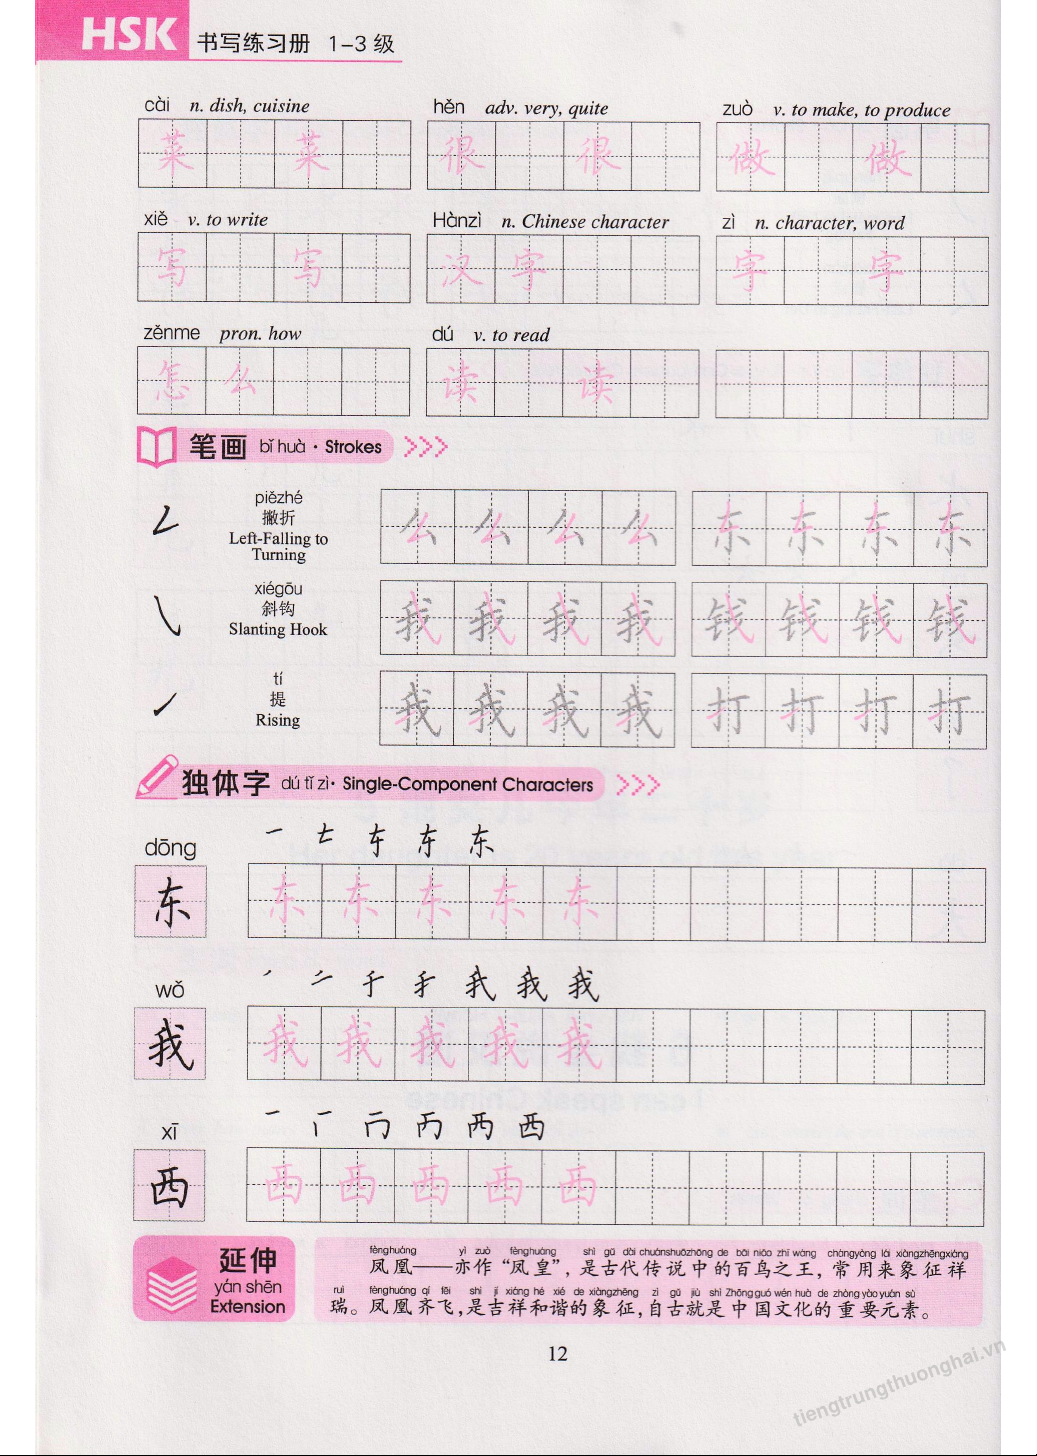 HSK 书写练习册 1-3 级
cài n. dish, cuisine hěn adv. very, quite zuò v. to make, to produce
菜 菜 很 很 做 做
xiě v. to write Hànzì n. Chinese character zì n. character, word
写 写 汉 字 字 字
zěnme pron. how dú v. to read
怎 么 读 读
笔画 bǐ huà · Strokes
piězhé
撇折
Left-Falling to
Turning
么 么 么 么 东 东 东 东
xiégōu
斜钩
Slanting Hook
我 我 我 我 钱 钱 钱 钱
tí
提
Rising
我 我 我 我 打 打 打 打
独体字 dú tǐ zì · Single-Component Characters
dōng
东 东 东 东 东 东
wǒ
我 我 我 我 我 我
xī
西 西 西 西 西 西
延伸
yán shēn
Extension
fènghuáng yì zuò fènghuáng shì gǔ dài chuánshuōzhōng de bǎi niǎo zhī wáng chángyòng lái xiàngzhēngxiáng
凤凰——亦作“凤皇”，是古代传说中的百鸟之王，常用来象征祥
ruì fènghuáng qí fēi shì jí xiáng hé xié de xiàngzhēng zì gǔ jiù shì Zhōngguó wén huà de zhòng yào yuán sù
瑞。凤凰齐飞，是吉祥和谐的象征，自古就是中国文化的重要元素。
12
tiengtrungthuonghai.vn